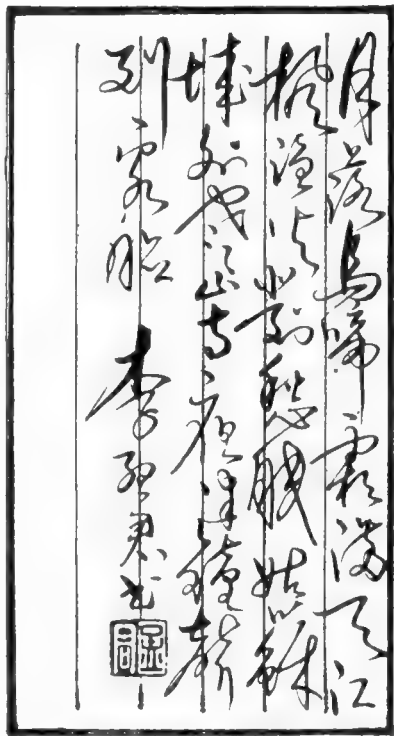 月落烏啼霜滿天江
楓漁火對愁眠姑蘇
城外寒山寺夜半鐘聲
到客船 李 书